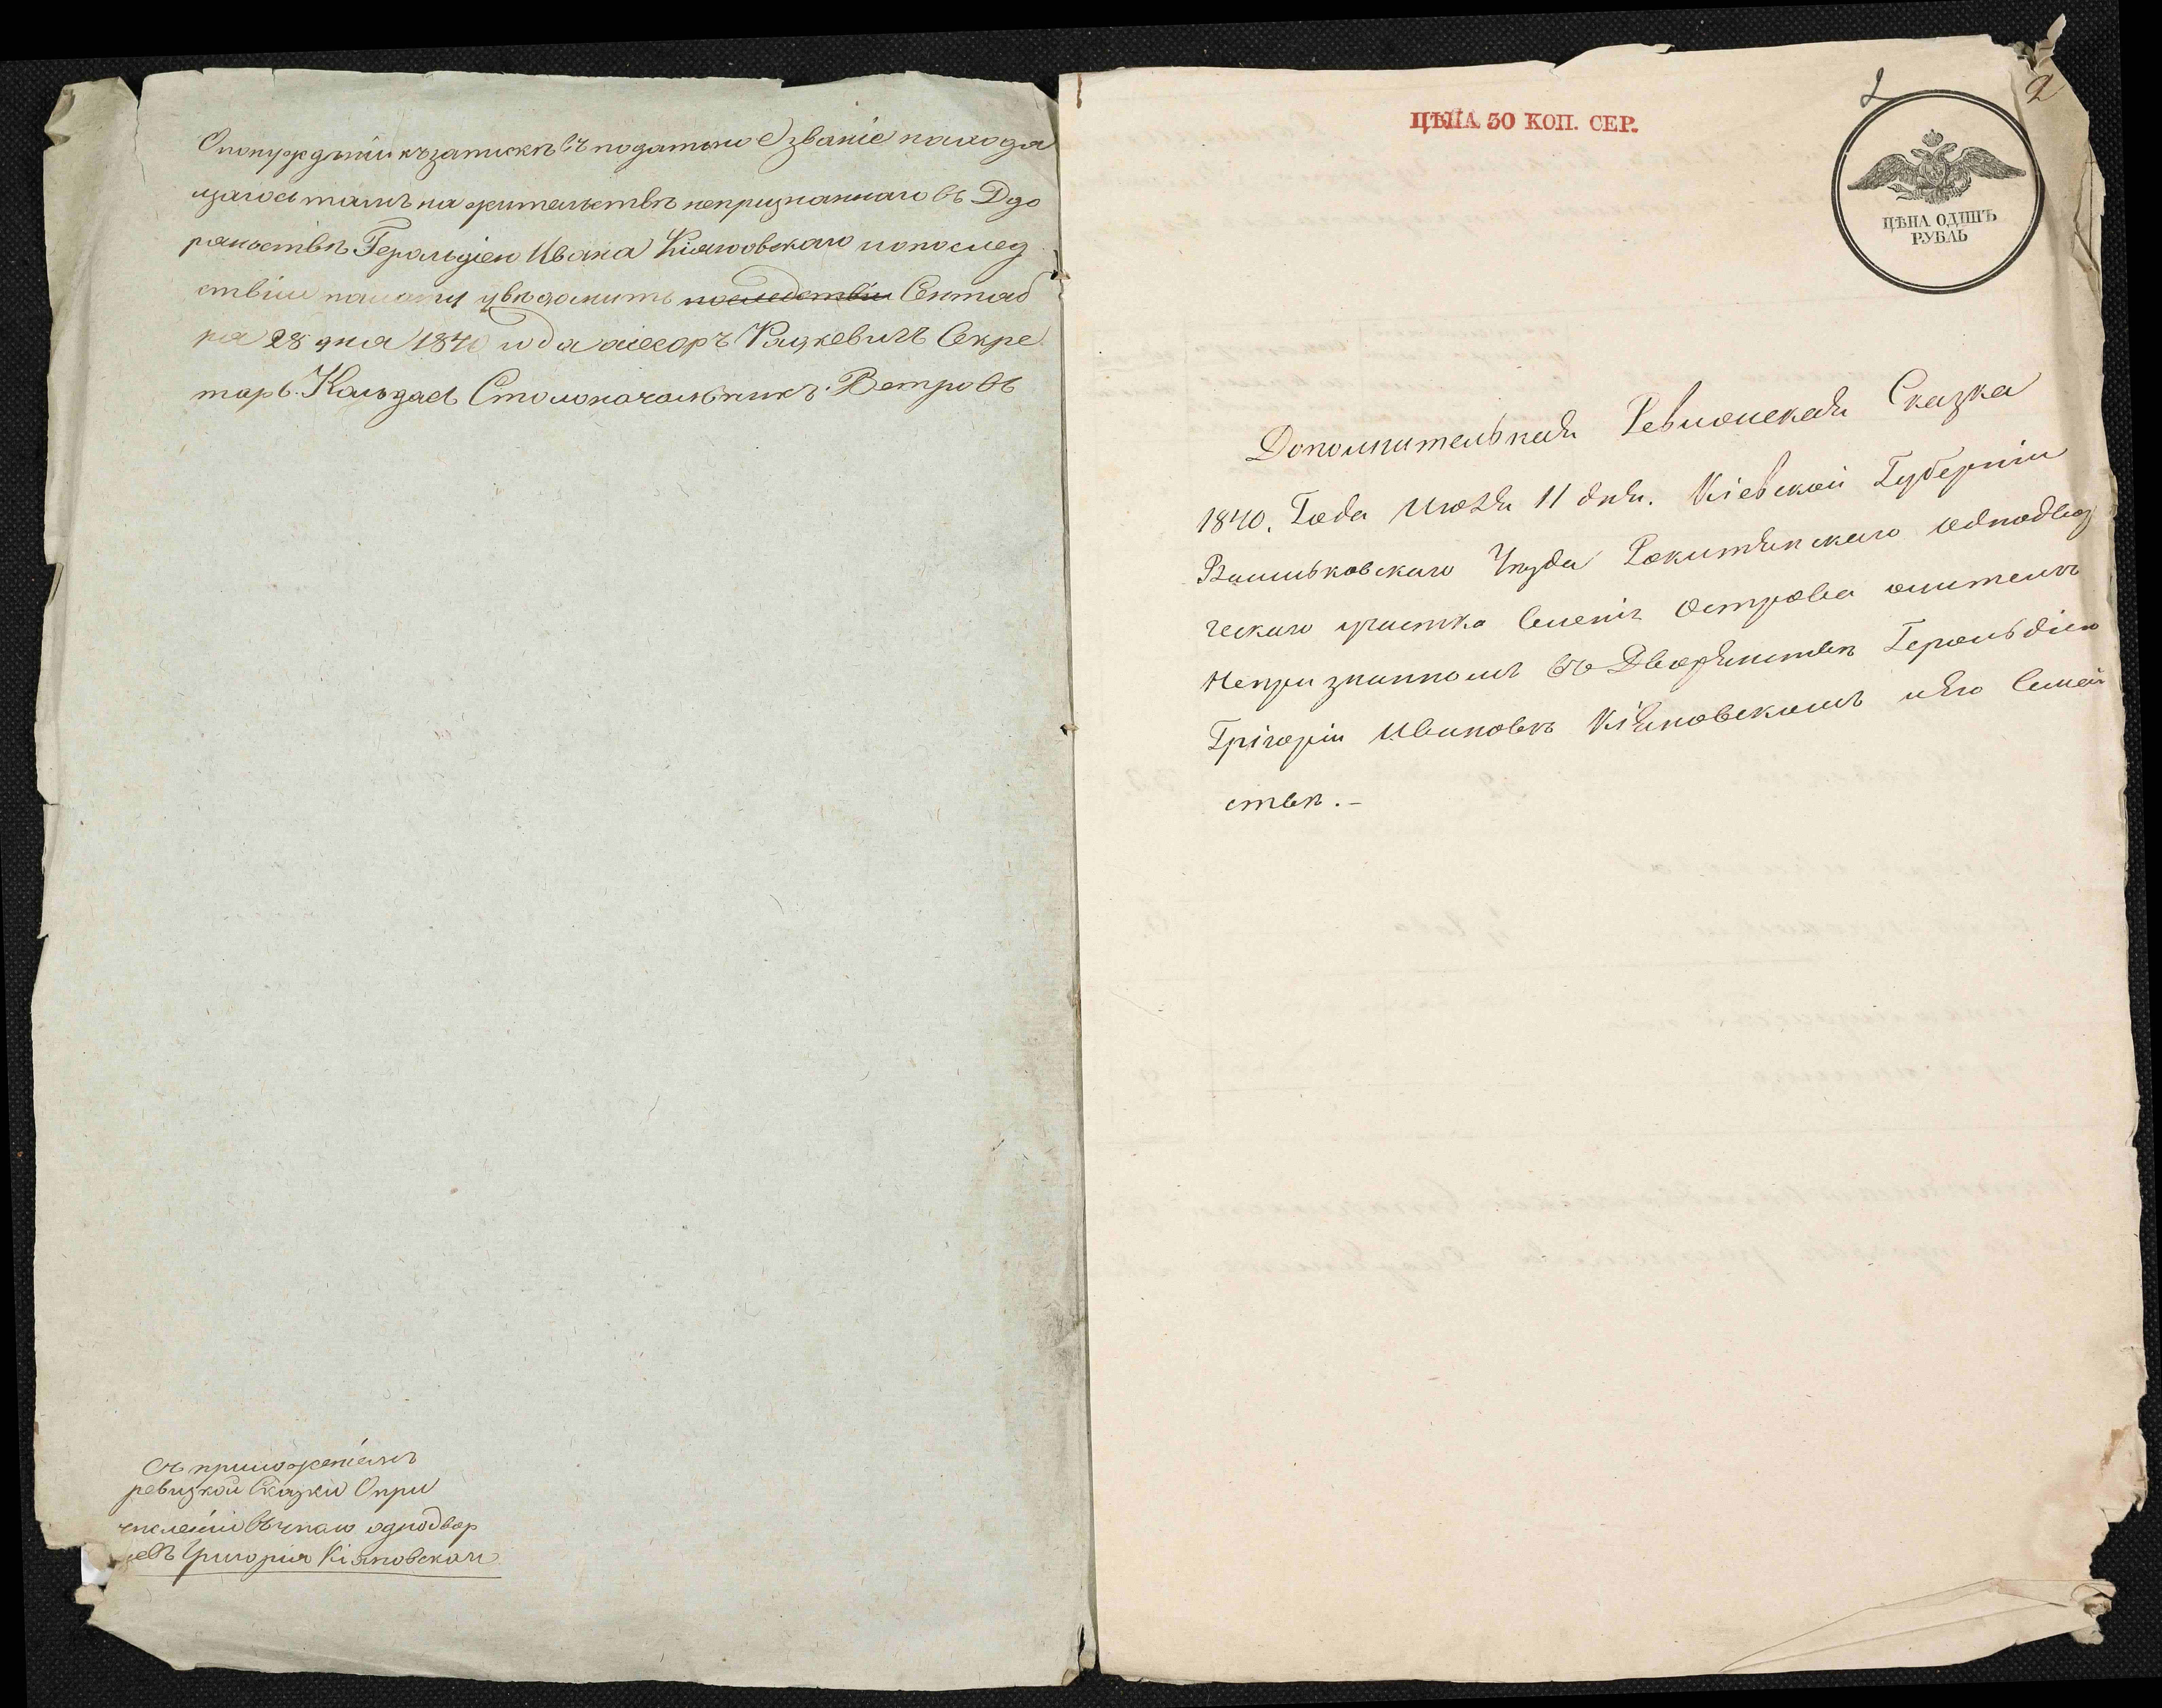 О понужденіи къ запискѣ въ податное званіе находя
щагося тамъ на жительствѣ непризнаннаго въ Дво
рянствѣ Герольдіею Ивана Кіяновскаго и о послед
ствіи палату увѣдомить последствіи Сентяб
ря 28 дня 1840 года асесоръ Секре
тарь Столоначальникъ Ветровъ
Съ приложеніемъ
ревизкой Сказки О при
численіи въ чпало однодвор
цевъ Григорія Кіяновскаго
ЦѢНА 50 КОП. СЕР.
2
2
ЦѢНА ОДИНЪ
РУБЛЬ
Дополнительная Ревизская Сказка
1840. Года Июля 11 дня. Кіевской Губерніи
Васильковскаго Уѣзда Рокитянскаго однодвор
ческаго участка Селенія Острова о жителѣ
Непризнанномъ въ Дворянствѣ Герольдіею
Грігоріи Ивановѣ Кіяновскомъ и его Семей
ствѣ.-